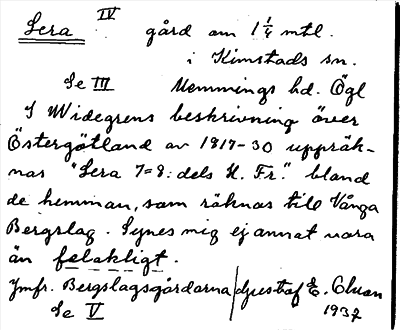 Sera IV gård om 1 1/4 mtl.
i Kimstads sn.
Se III Memmings hd. Ögl
I Widegrens beskrivning över
Östergötland av 1817-30 uppräk-
nas "Sera 7=8:dels H. Fr." bland
de hemman, som räknas till Vånga
Bergslag. Synes mig ej annat vara
än felaktigt.
Jmfr. Bergslagsgårdarna Gustaf E.
Se V 1937